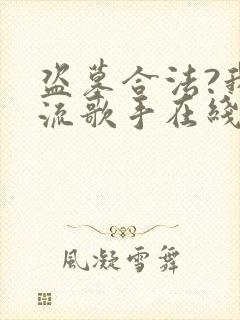 盗墓合法?我
流歌手在綫
風凝雪舞